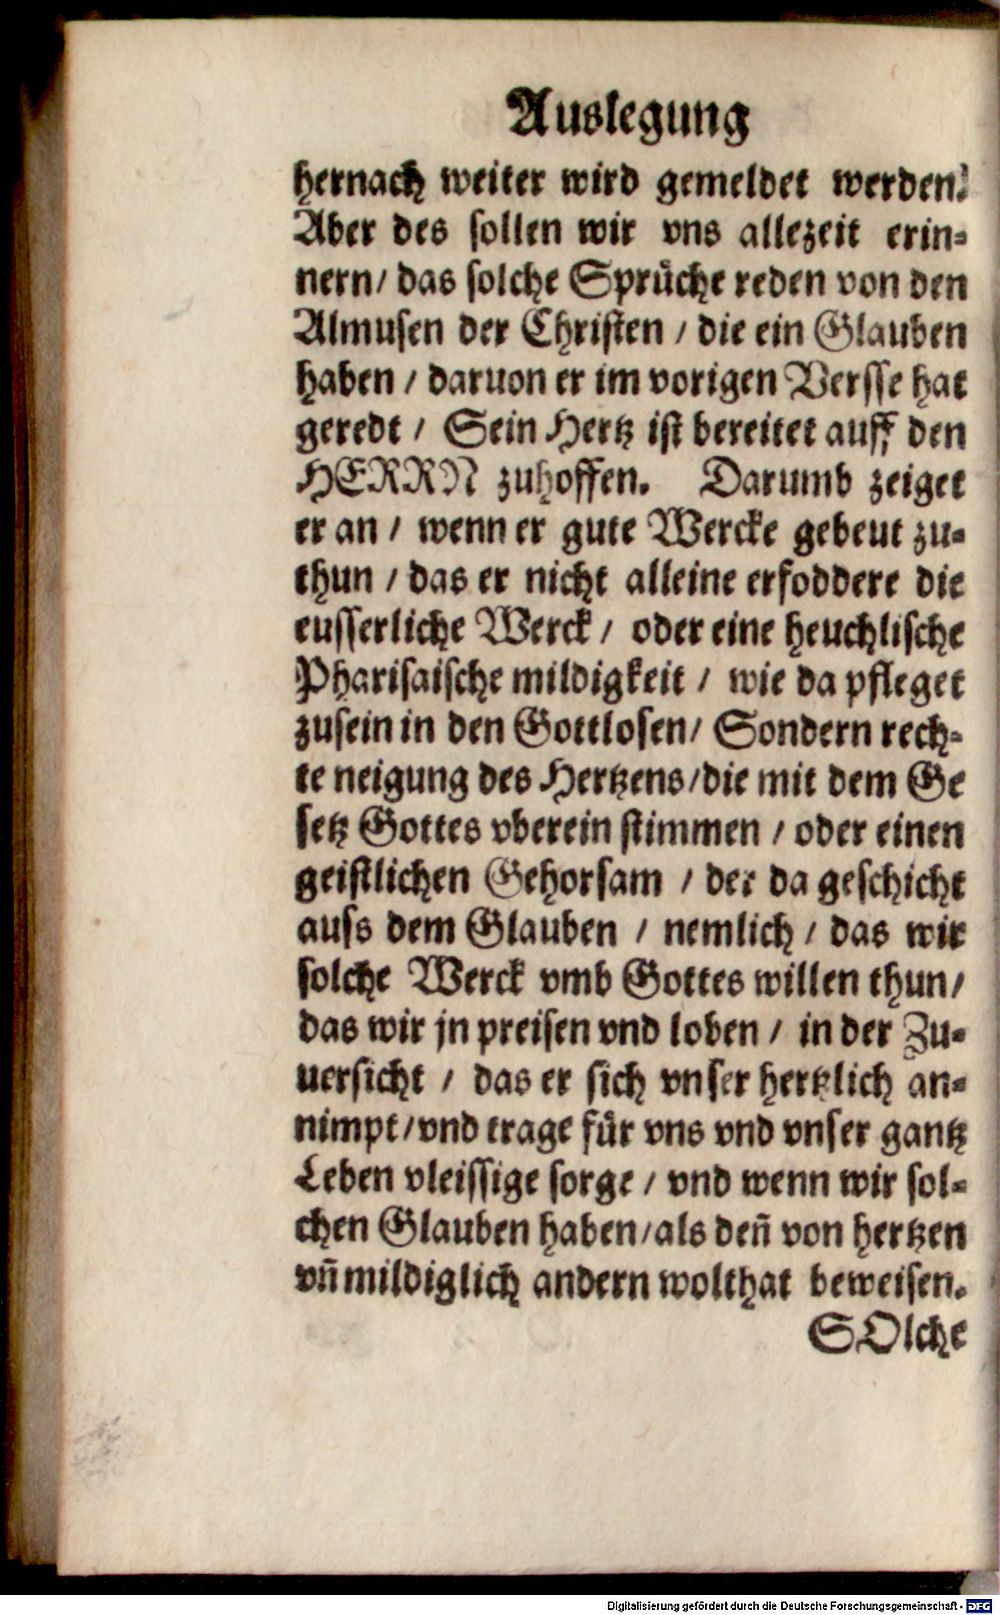 Auslegung
hernach weiter wird gemeldet werden.
Aber des sollen wir vns allezeit erin-
nern/ das solche Sprüche reden von den
Almusen der Christen / die ein Glauben
haben / daruon er im vorigen Versse hat
geredt / Sein Hertz ist bereitet auff den
HERRN zuhoffen. Darumb zeiget
er an / wenn er gute Wercke gebeut zu-
thun / das er nicht alleine erfoddere die
eusserliche Werck / oder eine heuchlische
Pharisaische mildigkeit / wie da pfleget
zusein in den Gottlosen/ Sondern rech-
te neigung des Hertzens/die mit dem Ge
setz Gottes vberein stimmen / oder einen
geistlichen Gehorsam / der da geschicht
auss dem Glauben / nemlich / das wir
solche Werck vmb Gottes willen thun/
das wir jn preisen vnd loben / in der Zu-
uersicht / das er sich vnser hertzlich an-
nimpt/vnd trage für vns vnd vnser gantz
Leben vleissige sorge / vnd wenn wir sol-
chen Glauben haben/als deñ von hertzen
vñ mildiglich andern wolthat beweisen.
SOlche
Digitalisierung gefördert durch die Deutsche Forschungsgemeinschaft - DFG